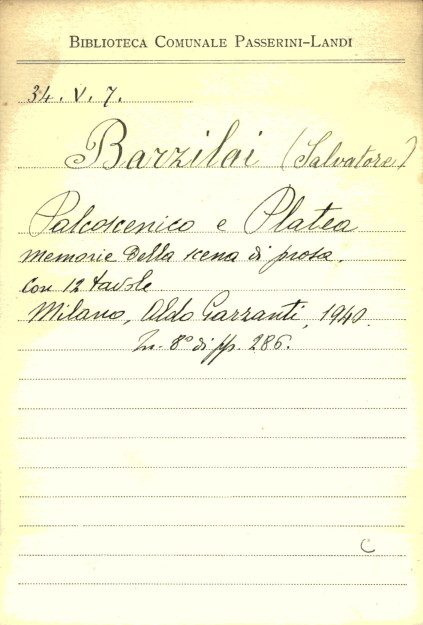 BIBLIOTECA COMUNALE PASSERINI-LANDI
34. V. 7.
Barzilai (Salvatore)
Palcoscenico e Platea
memorie della scena di prosa.
Con 12 tavole
Milano, Aldo Garzanti, 1940.
In-8° di pp. 286.
C